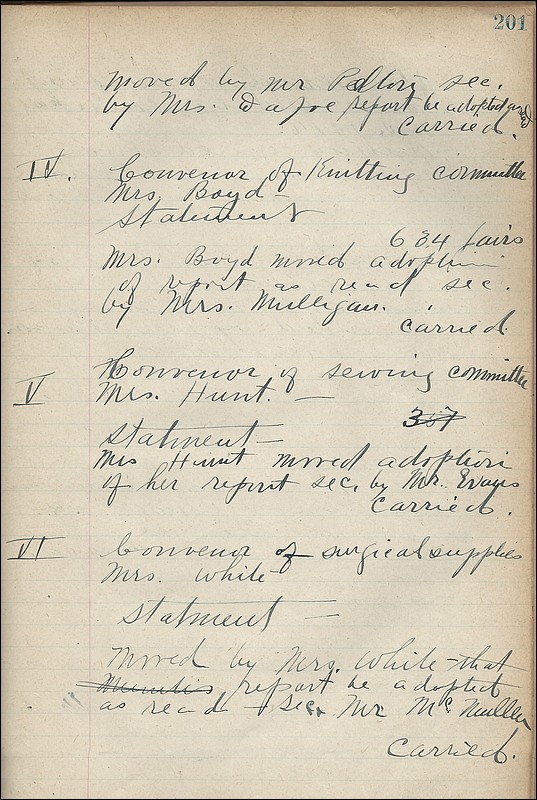 201
moved by mr Pelton sec.
by Mrs. Dafoe report be adopted and
Carried.
IV. Convenor of Knitting committee
Mrs. Boyd -
Statement
634 pairs
Mrs. Boyd moved adoption
of report as read sec.
by Mrs. Mulligan.
carried.
V Convenor of sewing committee
Mrs. Hunt. -
Statment -
Mrs Hunt moved adoption
of her report sec. by Mr. Evans
Carried.
VI Convenor of surgical supplies
Mrs. White
Statment -
Moved by Mrs. White - that
report be adopted
as read - sec. Mr McMullen
Carried.